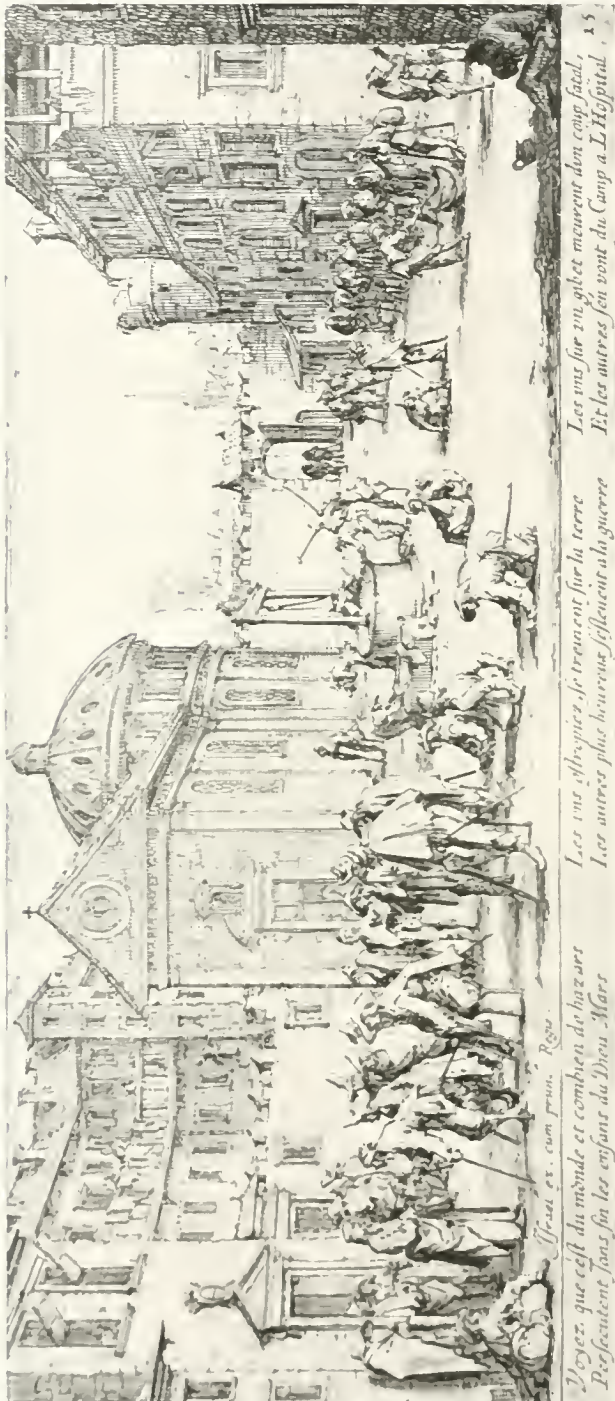 MARIA MATER
Israel ex. cum priuil. Regis.
Voyez que c'est du monde et combien de hazars
Persecutent sans fin les enfans du Dieu Mars
Les vns estropiez se treinent sur la terre
Les autres plus heureux s'esleuent a la guerre
Les vns sur vn gibet meurent d'vn coup fatal,
Et les autres s'en vont du Camp a L'Hospital.
15